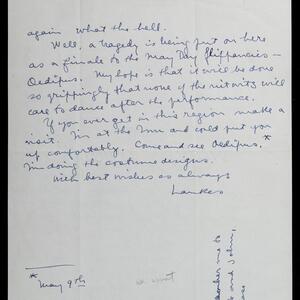 again what the hell.
Well, a tragedy is being put on here
as a finale to the May Day flippancies —
Oedipus. My hope is that it will be done
so grippingly that none of the rioters will
care to dance after the performance.
If you ever get in this region make a
visit. I'm at the Inn and could put you
up comfortably. Come and see Oedipus.*
I'm doing the costume designs.
With best wishes as always
Lankes
* May 9th
me to
and John,